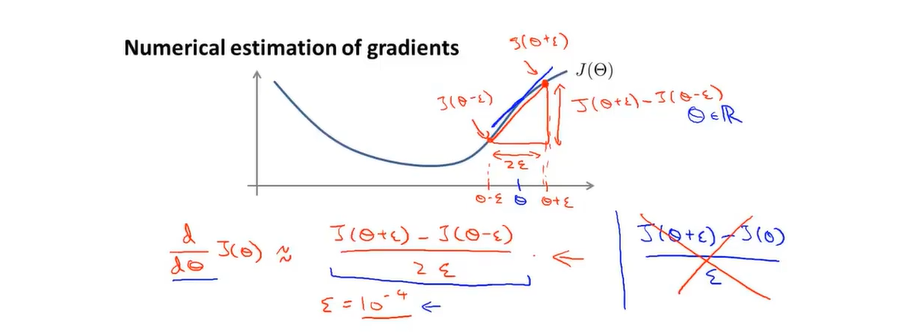 Numerical estimation of gradients
J(θ+ε)
J(Θ)
J(θ-ε)
J(θ+ε) - J(θ-ε)
θ ∈ ℝ
2ε
θ-ε θ θ+ε
d/dθ J(θ) ≈ (J(θ+ε) - J(θ-ε))/(2ε) ←
(J(θ+ε) - J(θ))/ε
ε = 10⁻⁴ ←